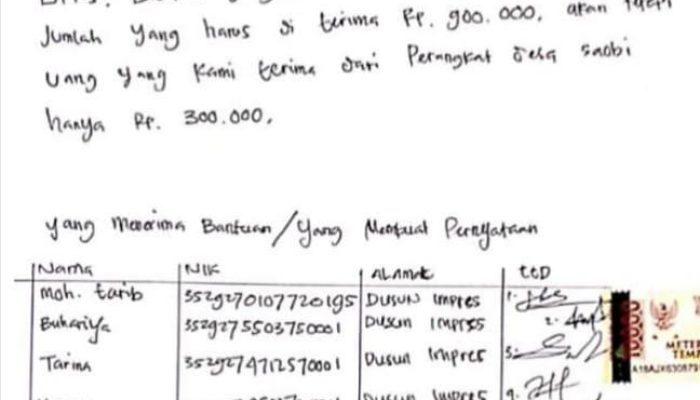 Jumlah yang harus di terima Rp. 900.000, akan tetapi
uang yang kami terima dari Perangkat desa saobi
hanya Rp. 300.000,
yang Menerima Bantuan / Yang Membuat Pernyataan
Nama NIK ALAMAt ttD
Moh. tarib 3529270107720195 DUSUN Impres 1.
Buhariya 3529275503750001 DUSUN Impres 2.
Tarima 3529274712570001 Dusun Impres 3.
Dusun Impres 4.
10000
METERAI
TEMPEL